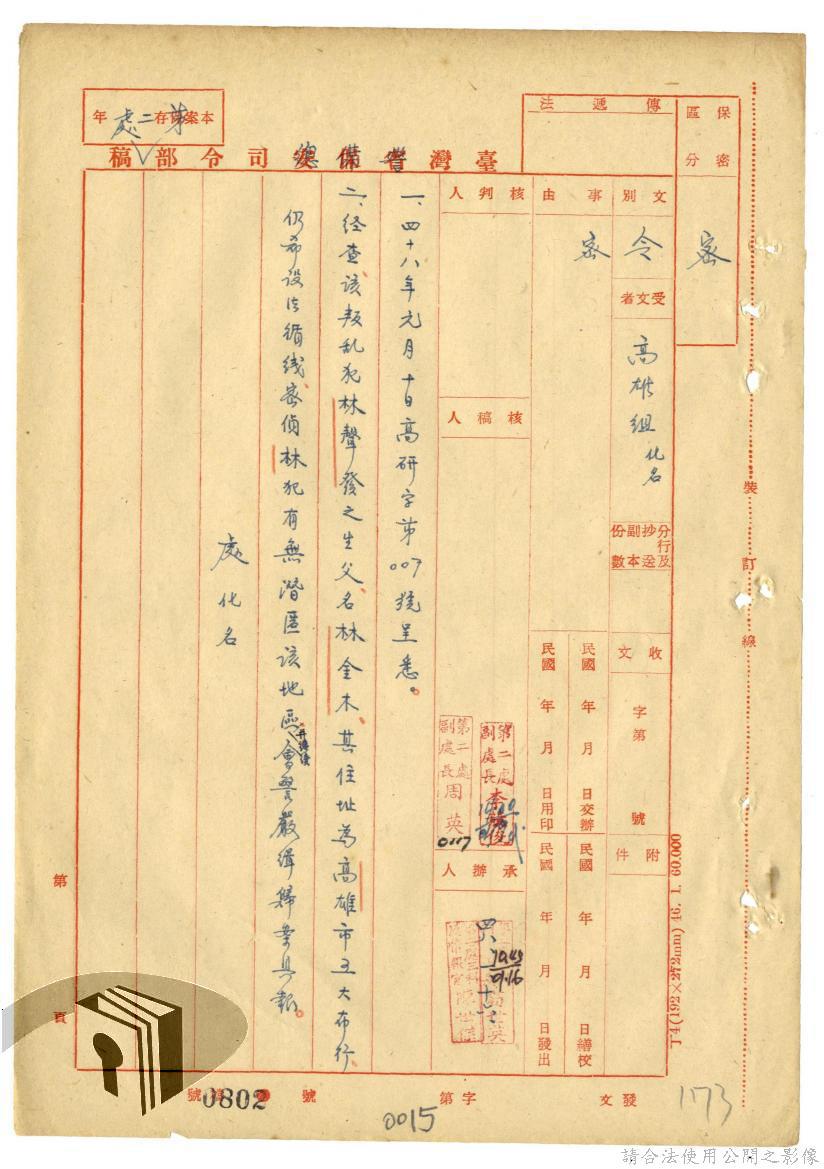 保密區分
密
傳遞法
本案存第二處年
臺灣警備總司令部稿
文別
令
事由
密
受文者
高雄組化名
分行及抄送副本份數
收文
字第
號
附件
核判人
核稿人
承辦人
民國
年
月
日交辦
民國
年
月
日用印
民國
年
月
日繕校
民國
年
月
日發出
第二處副處長
第二處副處長周英
0117
一、四十八年元月十日高研字第007號呈悉。
二、经查该叛乱犯林聲發之生父名林金木、其住址為高雄市五大布行、
仍希设法循线密侦林犯有無潛匿该地區、并继续會警嚴缉归案具報。
處化名
裝
訂
線
丁4(192×272mm) 46. 1. 60.000
第
頁
發文
字第
號
0802
號
0015
1173
請合法使用公開之影像